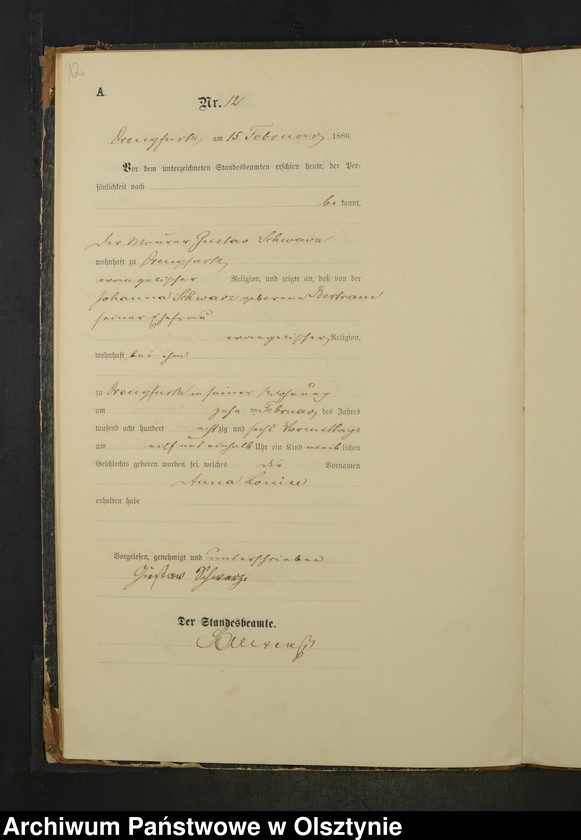 12
A.
Nr. 12
Drengfurth, am 15 Februar 1886.
Vor dem unterzeichneten Standesbeamten erschien heute, der Per-
sönlichkeit nach
be kannt,
der Maurer Gustav Schwarz
wohnhaft zu Drengfurth,
evangelischer Religion, und zeigte an, daß von der
Johanna Schwarz geborene Bertram
seiner Ehefrau
evangelischer Religion,
wohnhaft bei ihm
zu Drengfurth in seiner Wohnung
am zehn ten Februar des Jahres
tausend acht hundert achtzig und sechs Vormittags
um eilf und einhalb Uhr ein Kind weiblichen
Geschlechts geboren worden sei, welches die Vornamen
Anna Louise
erhalten habe
Vorgelesen, genehmigt und unterschrieben
Gustav Schwarz.
Der Standesbeamte.
Archiwum Państwowe w Olsztynie